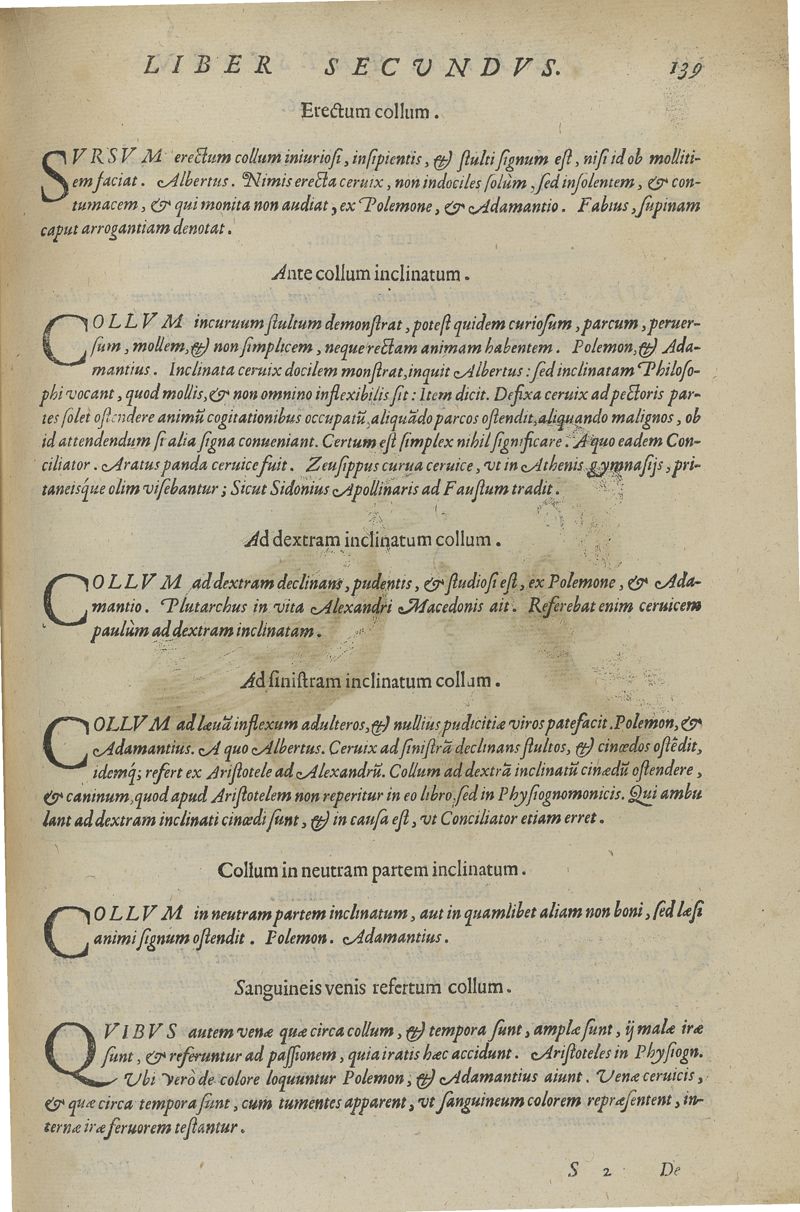 LIBER SECVNDVS. 139
Erectum collum.
SVRSVM erectum collum iniuriosi, insipientis, & stulti signum est, nisi id ob molliti-
em faciat. Albertus. Nimis erecta ceruix, non indociles solùm, sed insolentem, & con-
tumacem, & qui monita non audiat, ex Polemone, & Adamantio. Fabius, supinam
caput arrogantiam denotat.
Ante collum inclinatum.
COLLVM incuruum stultum demonstrat, potest quidem curiosum, parcum, peruer-
sum, mollem, & non simplicem, neque rectam animam habentem. Polemon, & Ada-
mantius. Inclinata ceruix docilem monstrat, inquit Albertus: sed inclinatam Philoso-
phi vocant, quod mollis, & non omnino inflexibilis sit: Item dicit. Defixa ceruix ad pectoris par-
tes solet ostendere animū cogitationibus occupatū, aliquādo parcos ostendit, aliquando malignos, ob
id attendendum si alia signa conueniant. Certum est simplex nihil significare. A quo eadem Con-
ciliator. Aratus panda ceruice fuit. Zeusippus curua ceruice, vt in Athenis gymnasijs, pri-
taneisq́ue olim visebantur; Sicut Sidonius Apollinaris ad Faustum tradit.
Ad dextram inclinatum collum.
COLLVM ad dextram declinans, pudentis, & studiosi est, ex Polemone, & Ada-
mantio. Plutarchus in vita Alexandri Macedonis ait. Referebat enim ceruicem
paulùm ad dextram inclinatam.
Ad sinistram inclinatum collum.
COLLVM ad læuā inflexum adulteros, & nullius pudicitiæ viros patefacit. Polemon, &
Adamantius. A quo Albertus. Ceruix ad sinistrā declinans stultos, & cinœdos ostēdit,
idemq́; refert ex Aristotele ad Alexandrū. Collum ad dextrā inclinatū cinædū ostendere,
& caninum, quod apud Aristotelem non reperitur in eo libro, sed in Physiognomonicis. Qui ambu
lant ad dextram inclinati cinœdi sunt, & in causa est, vt Conciliator etiam erret.
Collum in neutram partem inclinatum.
COLLVM in neutram partem inclinatum, aut in quamlibet aliam non boni, sed læsi
animi signum ostendit. Polemon. Adamantius.
Sanguineis venis refertum collum.
QVIBVS autem venæ quæ circa collum, & tempora sunt, amplæ sunt, ij malæ iræ
sunt, & referuntur ad passionem, quia iratis hæc accidunt. Aristoteles in Physiogn.
Vbi verò de colore loquuntur Polemon, & Adamantius aiunt. Venæ ceruicis,
& quæ circa tempora sunt, cum tumentes apparent, vt sanguineum colorem repræsentent, in-
ternæ iræ feruorem testantur.
S 2 De